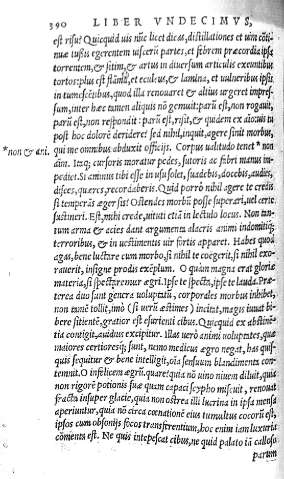 390 LIBER VNDECIMVS,
est risu? Quicquid uis nūc licet dicas, distillationes et uim cōti-
nuæ tussis egerentem uiscerū partes, et febrem præcordia ipsa
torrentem, & sitim, & artus in diuersum articulis exeuntibus
tortos: plus est flāma, et eculeus, & lamina, et vulneribus ipsis
in tumescētibus, quod illa renouaret & altius urgeret impres-
sum, inter hæc tamen aliquis nō gemuit: parū est, non rogauit,
parū est, non respondit: parū est, risit, & quidem ex aīo: uis tu
post hoc dolorē deridere? sed nihil, inquit, agere sinit morbus,
qui me omnibus abduxit officijs. Corpus ualitudo tenet * non
*non & ani.
aīm. Itaq; cursoris moratur pedes, sutoris ac fabri manus im-
pediet. Si aminus tibi esse in usu solet, suadebis, docebis, audies,
disces, quæres, recordaberis. Quid porrò nihil agere te credis
si temperās æger sis? Ostendes morbū posse superari, uel certè
sustineri. Est, mihi crede, uirtuti etiā in lectulo locus. Non tan-
tum arma & acies dant argumenta alacris animi indomitiq;
terroribus, & in uestimentis uir fortis apparet. Habes quod
agas, bene luctare cum morbo, si nihil te coegerit, si nihil exo-
rauerit, insigne prodis exēplum. O quàm magna erat gloriæ
materia, si spectaremur ægri. Ipse te specta, ipse te lauda. Præ-
terea duo sunt genera uoluptatū, corporales morbus inhibet,
non tamē tollit, imò (si uerū æstimes) incitat, magis iuuat bi-
bere sitientē, gratior est esurienti cibus. Quicquid ex abstinē-
tia contigit, auidius excipitur. Illas uerò animi uoluptates, quæ
maiores certioresq; sunt, nemo medicus ægro negat, has quis-
quis sequitur & bene intelligit, oīa sensuum blandimenta con-
temnit. O infelicem ægrū. quare? quia nō uino niuem diluit, quia
non rigorē potionis suæ quam capaci scypho miscuit, renouat
fracta insuper glacie, quia non ostrea illi lucrina in ipsa mensa
aperiuntur, quia nō circa cœnationē eius tumultus cocorū est,
ipsos cum obsonijs focos transferentium, hoc enim iam luxuria
cōmēta est. Ne quis intepescat cibus, ne quid palato iā calloso
parum